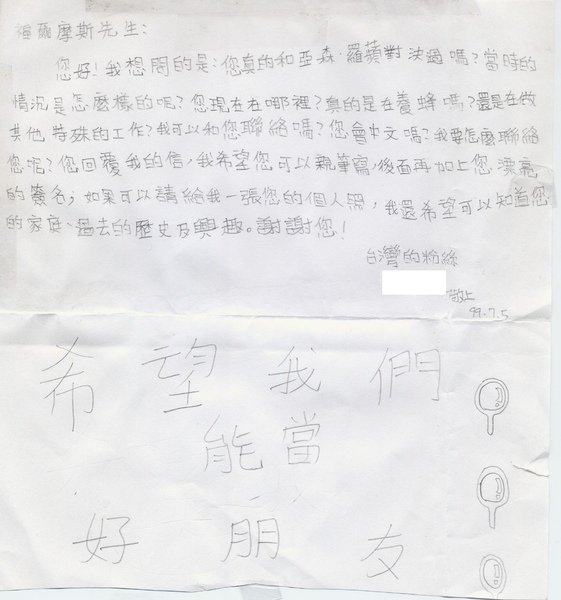 福爾摩斯先生：
您好！我想問的是：您真的和亞森·羅蘋對決過嗎？當時的
情況是怎麼樣的呢？您現在在哪裡？真的是在養蜂嗎？還是在做
其他特殊的工作？我可以和您聯絡嗎？您會中文嗎？我要怎麼聯絡
您呢？您回覆我的信，我希望您可以親筆寫，後面再加上您漂亮
的簽名；如果可以請給我一張您的個人照，我還希望可以知道您
的家庭、過去的歷史及興趣。謝謝您！
台灣的粉絲
敬上
99.7.5
希望我們
能當
好朋友